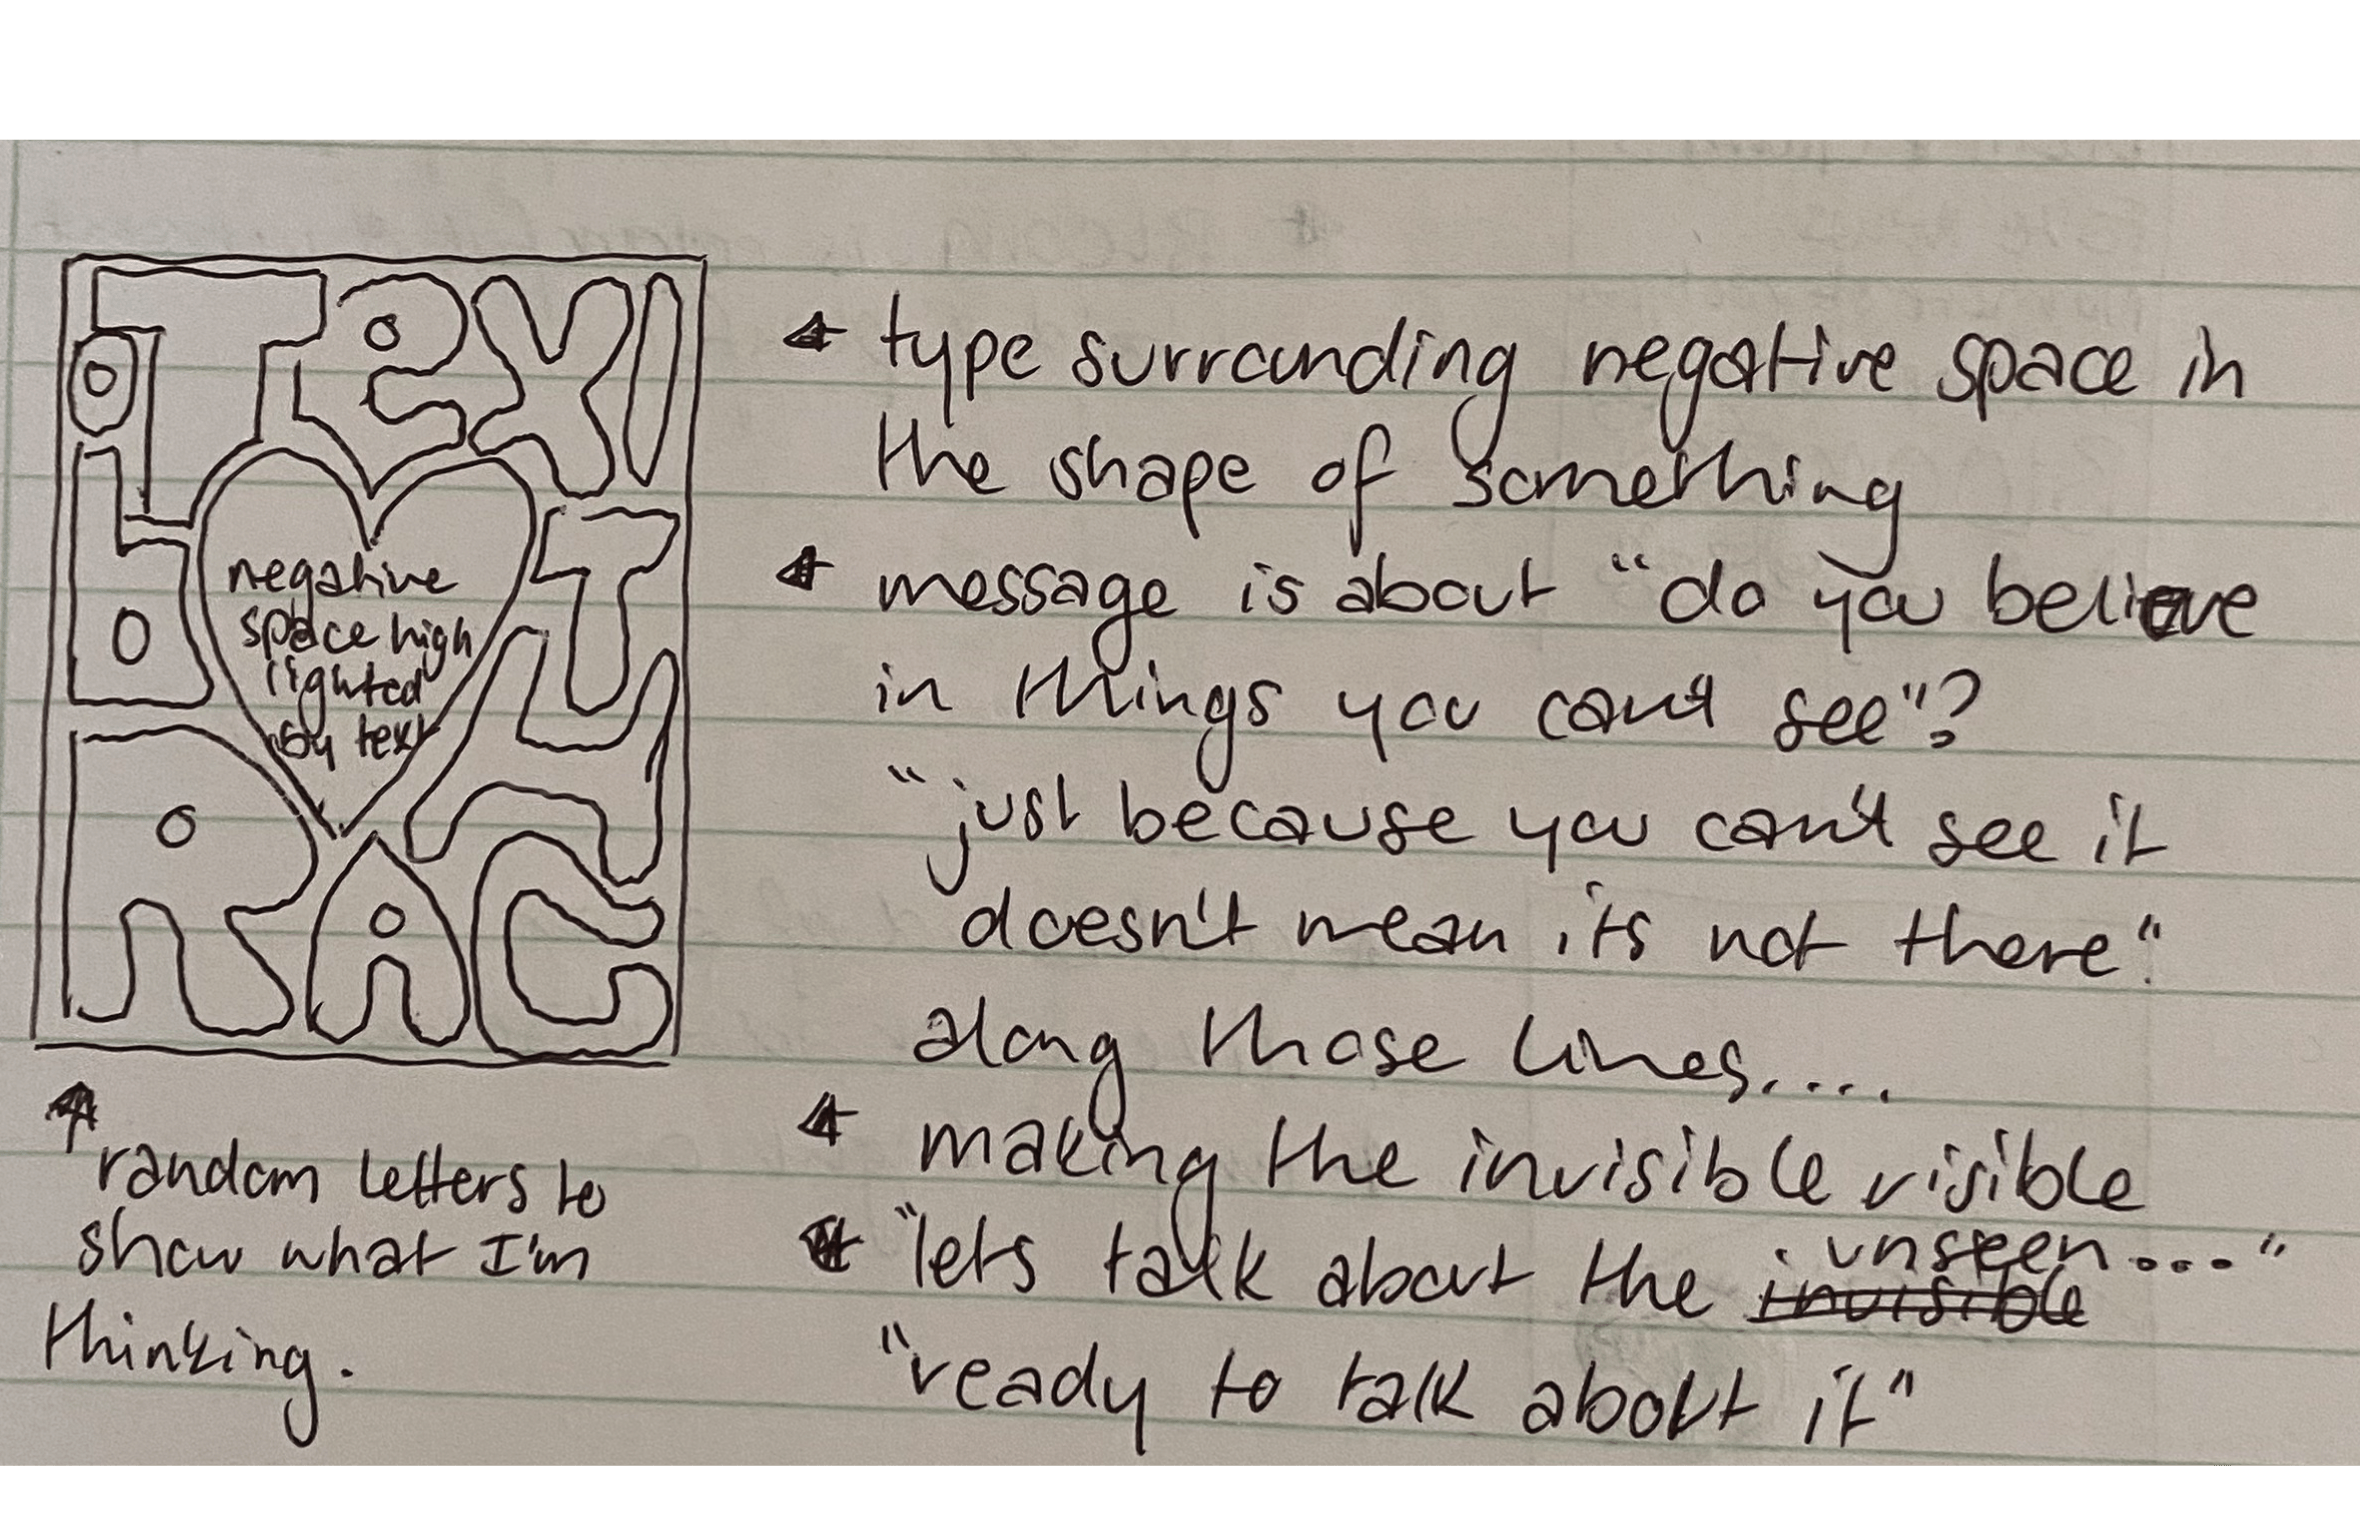 TEXT
negative
space high
lighted
by text
RAC
random letters to
show what I'm
thinking.
type surrounding negative space in
the shape of something
message is about "do you believe
in things you can't see"?
"just because you can't see it
doesn't mean its not there"
along those lines.....
making the invisible visible
"lets talk about the invisible unseen..."
"ready to talk about it"